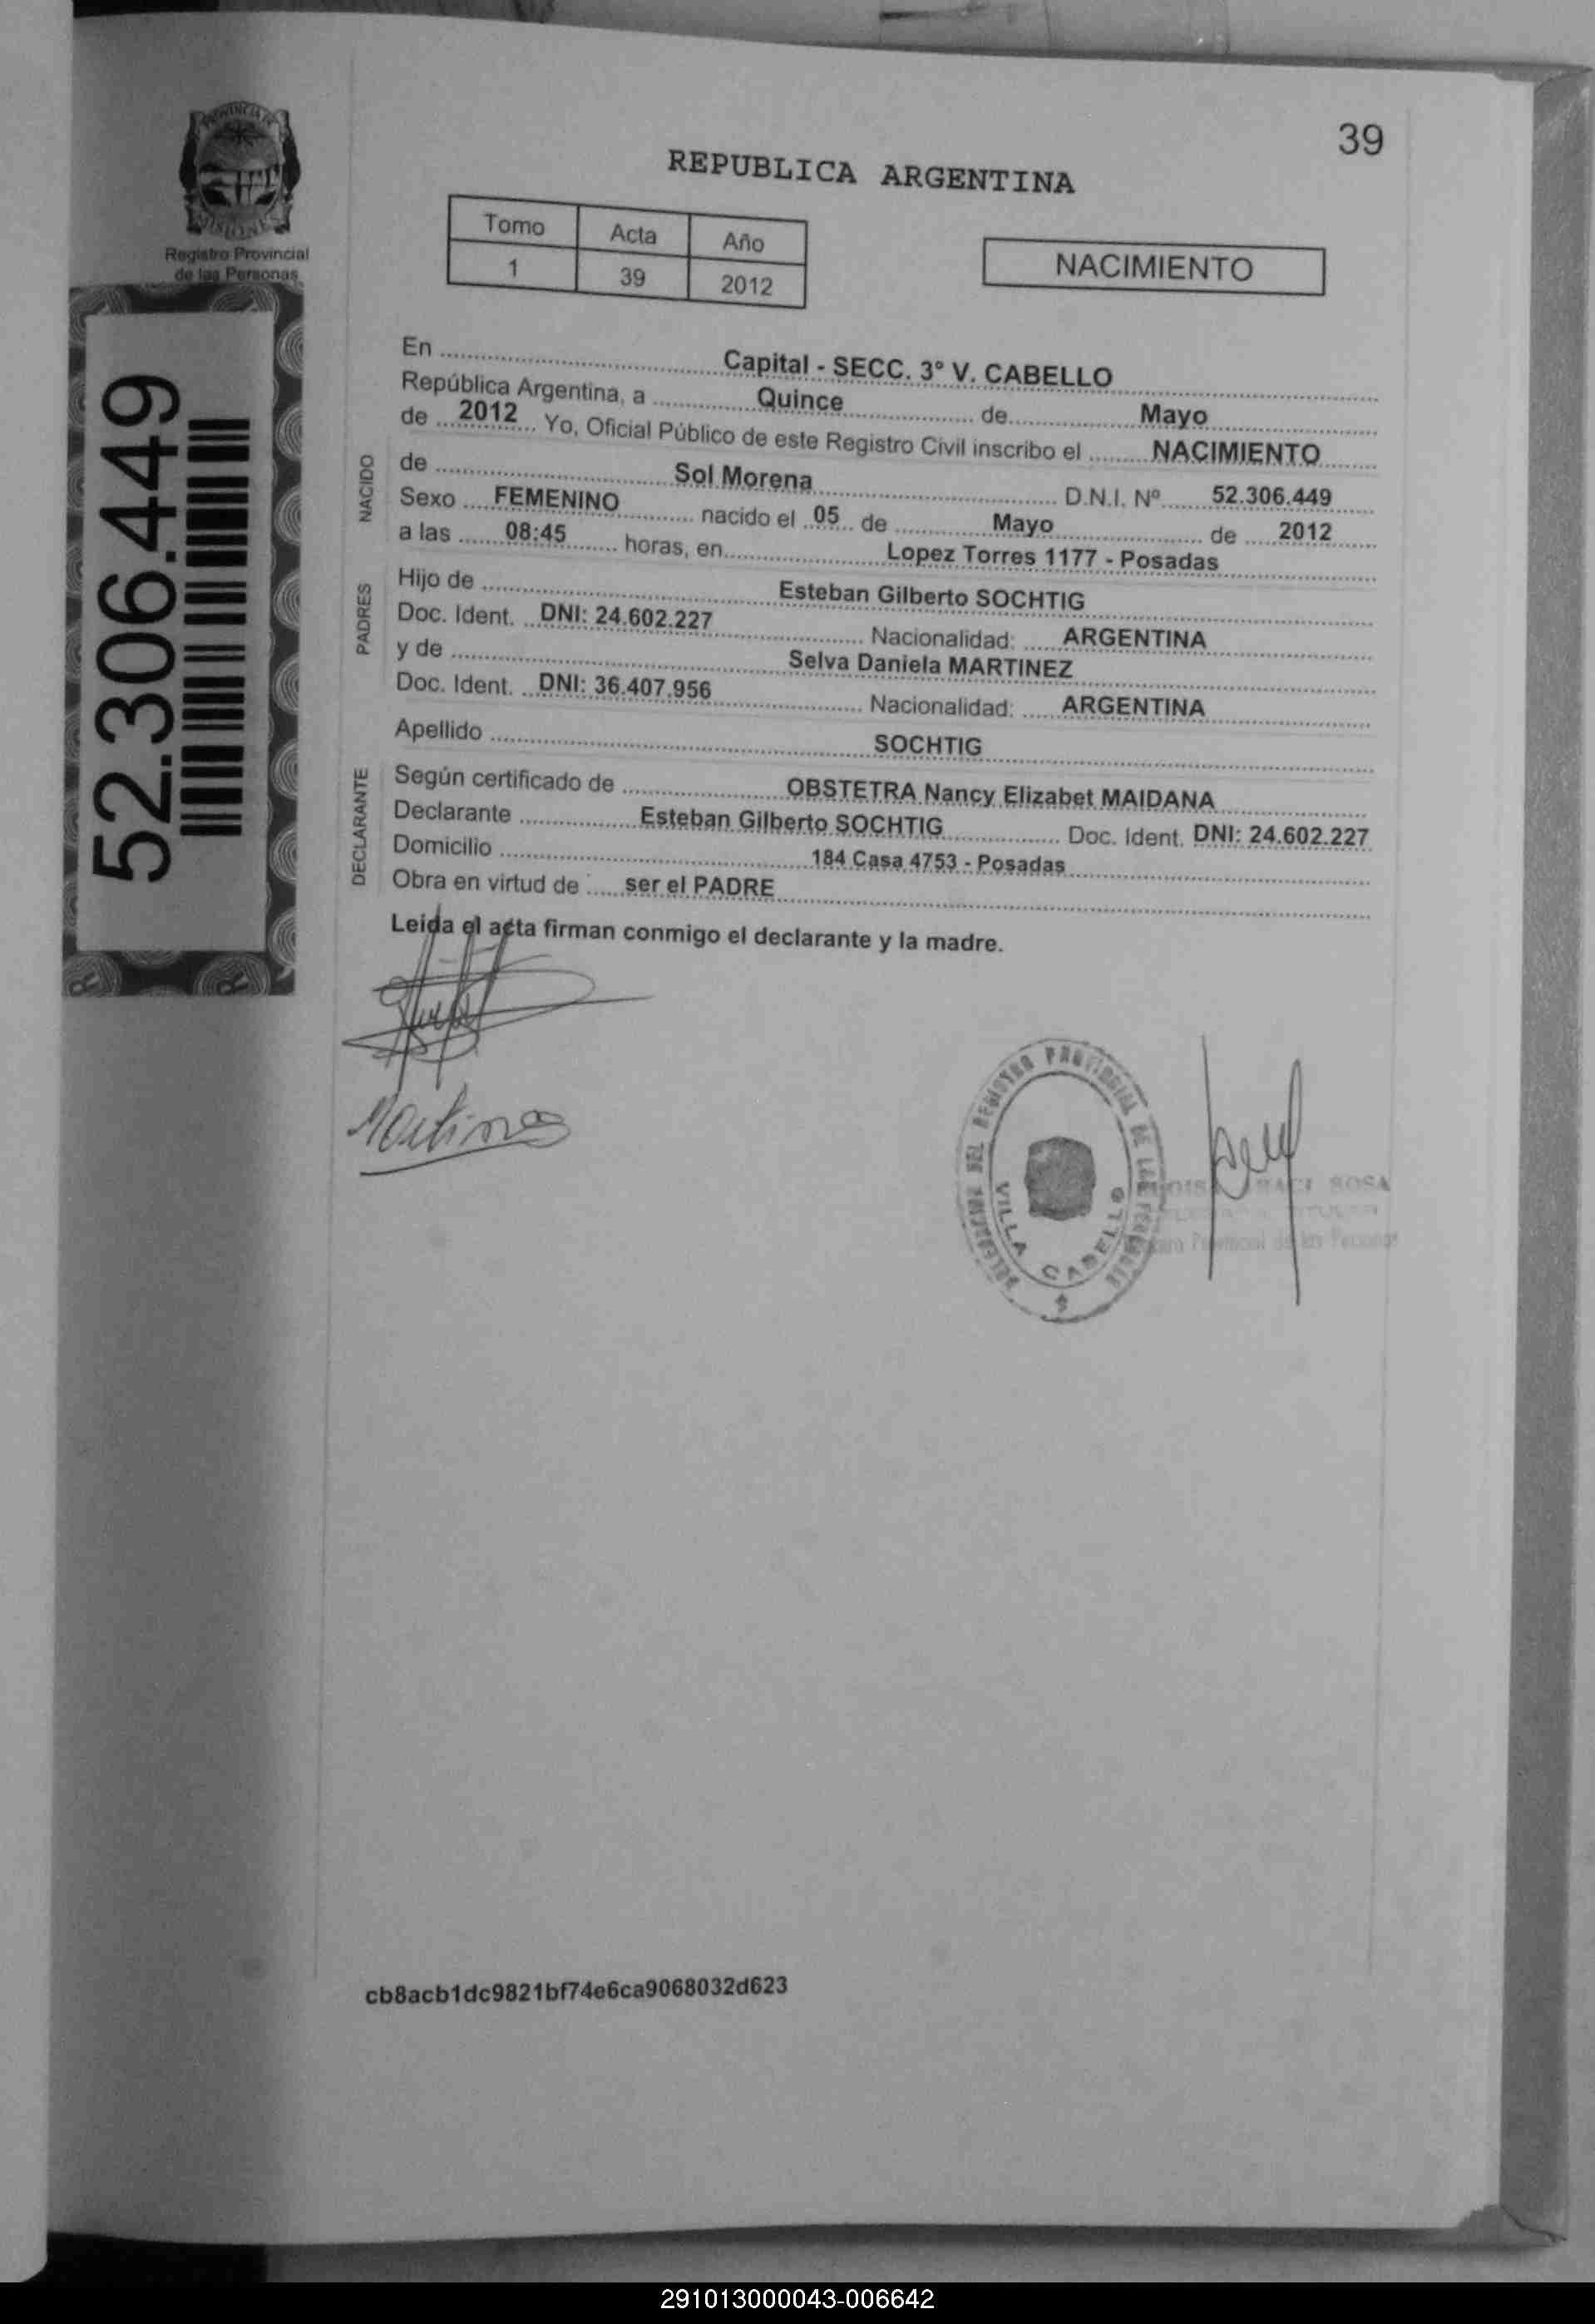 39
PROVINCIA DE
MISIONES
Registro Provincial
de las Personas
REPUBLICA ARGENTINA
Tomo Acta Año
1 39 2012
NACIMIENTO
52.306.449
En Capital - SECC. 3° V. CABELLO
República Argentina, a Quince de Mayo
de 2012 Yo, Oficial Público de este Registro Civil inscribo el NACIMIENTO
NACIDO
de Sol Morena D.N.I. Nº 52.306.449
Sexo FEMENINO nacido el 05 de Mayo de 2012
a las 08:45 horas, en Lopez Torres 1177 - Posadas
PADRES
Hijo de Esteban Gilberto SOCHTIG
Doc. Ident. DNI: 24.602.227 Nacionalidad: ARGENTINA
y de Selva Daniela MARTINEZ
Doc. Ident. DNI: 36.407.956 Nacionalidad: ARGENTINA
Apellido SOCHTIG
DECLARANTE
Según certificado de OBSTETRA Nancy Elizabet MAIDANA
Declarante Esteban Gilberto SOCHTIG Doc. Ident. DNI: 24.602.227
Domicilio 184 Casa 4753 - Posadas
Obra en virtud de ser el PADRE
Leida el acta firman conmigo el declarante y la madre.
DELEGACION DEL REGISTRO PROVINCIAL DE LAS PERSONAS
VILLA CABELLO
SOSA
Provincial de las Personas
cb8acb1dc9821bf74e6ca9068032d623
291013000043-006642